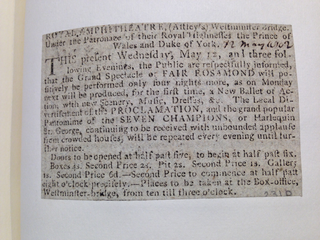 ROYAL AMPHITHEATRE, (Astley's) Westminster-bridge.
Under the Patronage of their Royal Highnesses the Prince of
Wales and Duke of York. 12 May 1802
THIS present Wednesday, May 12, and three fol-
lowing Evenings, the Public are respectfully informed,
that the Grand Spectacle of FAIR ROSAMOND will po-
sitively be performed only four nights more, as on Monday
next will be produced, for the first time, a New Ballet of Ac-
tion, with new Scenery, Music, Dresses, &c. The Local Di-
vertisement of the PROCLAMATION, and the grand popular
Pantomime of the SEVEN CHAMPIONS, or Harlequin
St. George, continuing to be received with unbounded applause
from crowded houses, will be repeated every evening until fur-
ther notice.
Doors to be opened at half past five, to begin at half past six.
Boxes 4s. Second Price 2s. Pit 2s. Second Price 1s. Gallery
1s. Second Price 6d.—Second Price to commence at half past
eight o'clock precisely.—Places to be taken at the Box-office,
Westminster-bridge, from ten till three o'clock.